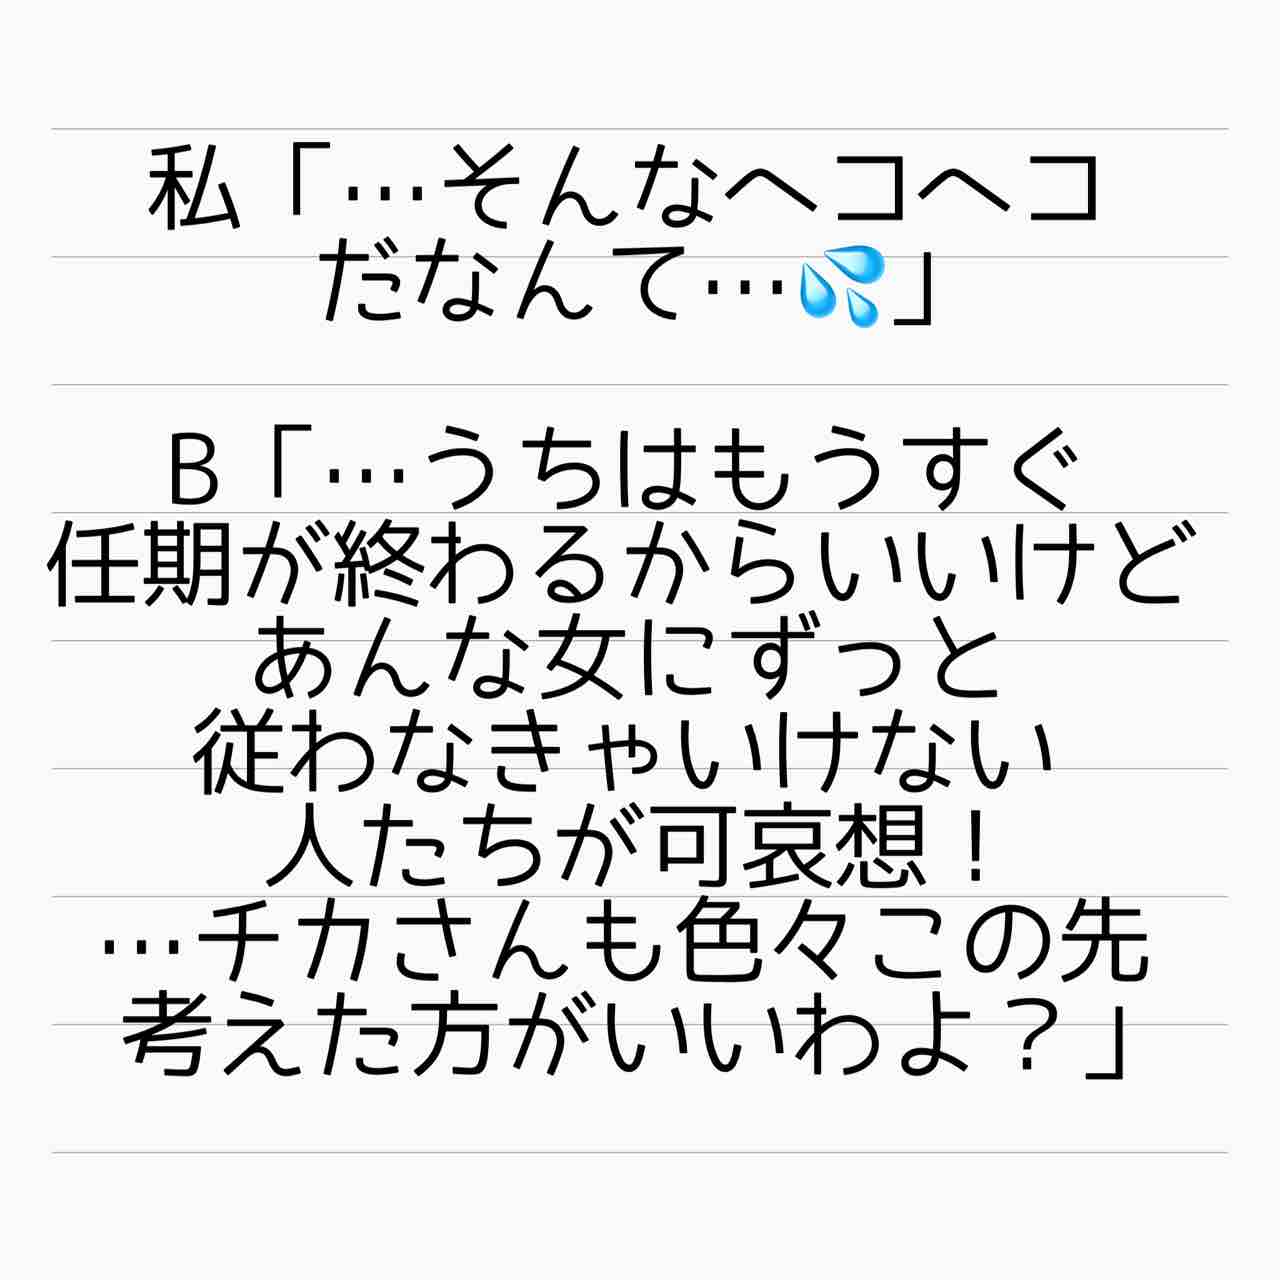 私「…そんなヘコヘコ
だなんて…💦」
B「…うちはもうすぐ
任期が終わるからいいけど
あんな女にずっと
従わなきゃいけない
人たちが可哀想！
…チカさんも色々この先
考えた方がいいわよ？」